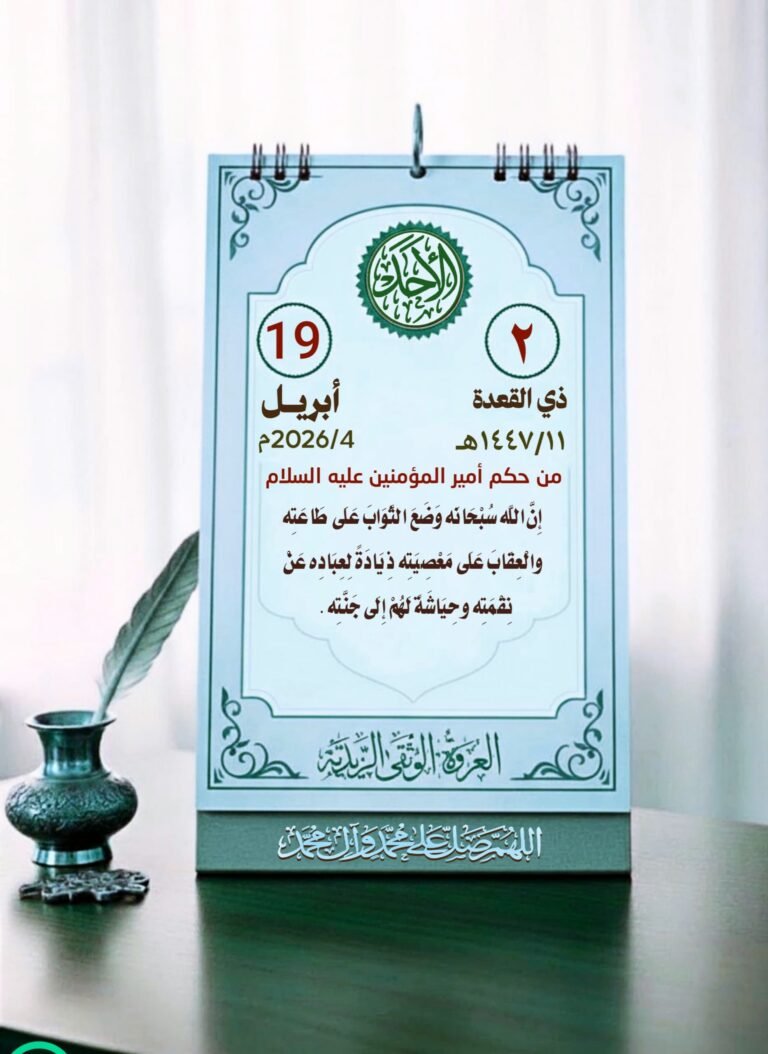 الأحد
٢
19
ذي القعدة
أبريـل
١٤٤٧/١١هـ
2026/4م
من حكم أمير المؤمنين عليه السلام
إِنَّ اللَّه سُبْحَانَه وَضَعَ الثَّوَابَ عَلَى طَاعَتِه
والْعِقَابَ عَلَى مَعْصِيَتِه ذِيَادَةً لِعِبَادِه عَنْ
نِقْمَتِه وحِيَاشَةً لَهُمْ إِلَى جَنَّتِه .
العروة الوثقى الزيدية
اللهم صل على محمد وآل محمد